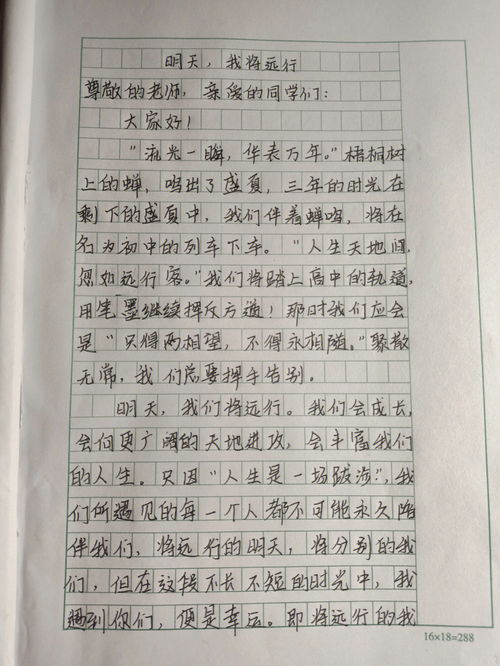 明天，我将远行
尊敬的老师，亲爱的同学们：
大家好！
“流光一瞬，华表万年。”梧桐树
上的蝉，鸣出了盛夏，三年的时光在
剩下的盛夏中，我们伴着蝉鸣，将在
名为初中的列车下车。“人生天地间，
忽如远行客。”我们将踏上高中的轨道，
用笔墨继续挥斥方遒！那时我们应会
是“只得两相望，不得永相随。”聚散
无常，我们总要挥手告别。
明天，我们将远行。我们会成长，
会向更广阔的天地进攻，会丰富我们
的人生。只因“人生是一场跋涉”，我
们所遇见的每一个人都不可能永久陪
伴我们，将远行的明天，将分别的我
们，但在这段不长不短的时光中，我
遇到你们，便是幸运。即将远行的我
16×18=288